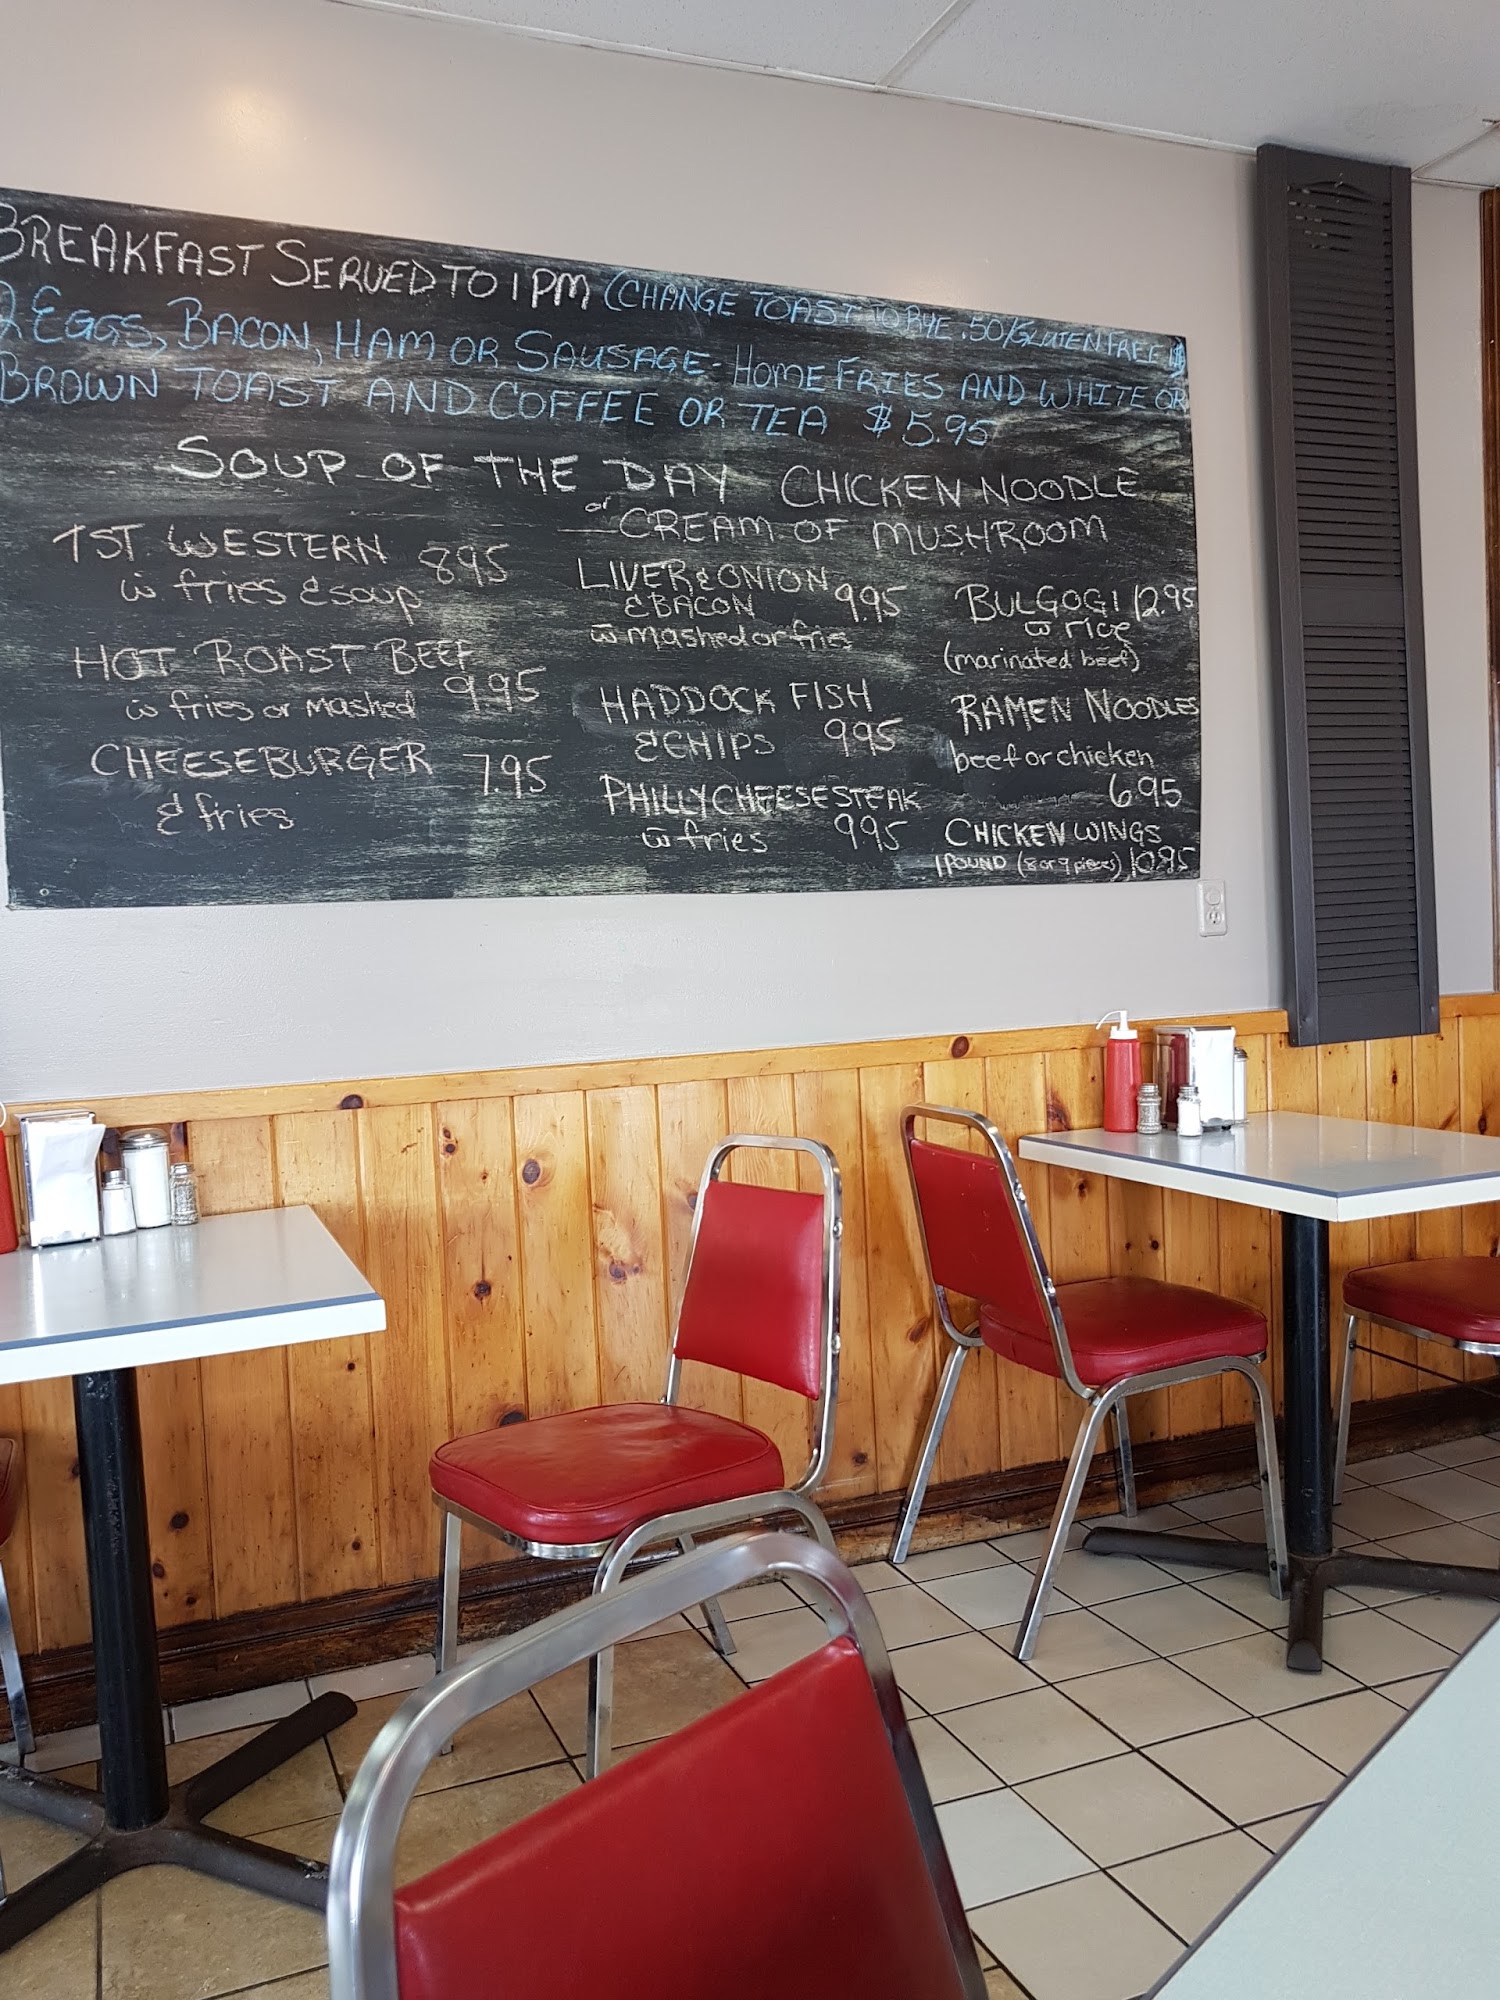 BREAKFAST SERVED TO 1 PM (CHANGE TOAST TO RYE .50/GLUTEN FREE
2 EGGS, BACON, HAM OR SAUSAGE - HOME FRIES AND WHITE OR
BROWN TOAST AND COFFEE OR TEA $5.95
SOUP OF THE DAY CHICKEN NOODLE
or CREAM OF MUSHROOM
TST WESTERN 8.95
w fries & soup
HOT ROAST BEEF
w fries or mashed 9.95
CHEESEBURGER 7.95
& fries
LIVER & ONION
& BACON 9.95
w mashed or fries
HADDOCK FISH
& CHIPS 9.95
PHILLY CHEESE STEAK
w fries 9.95
BULGOGI 12.95
w rice
(marinated beef)
RAMEN NOODLES
beef or chicken
6.95
CHICKEN WINGS
1 POUND (8 or 9 pieces) 10.95